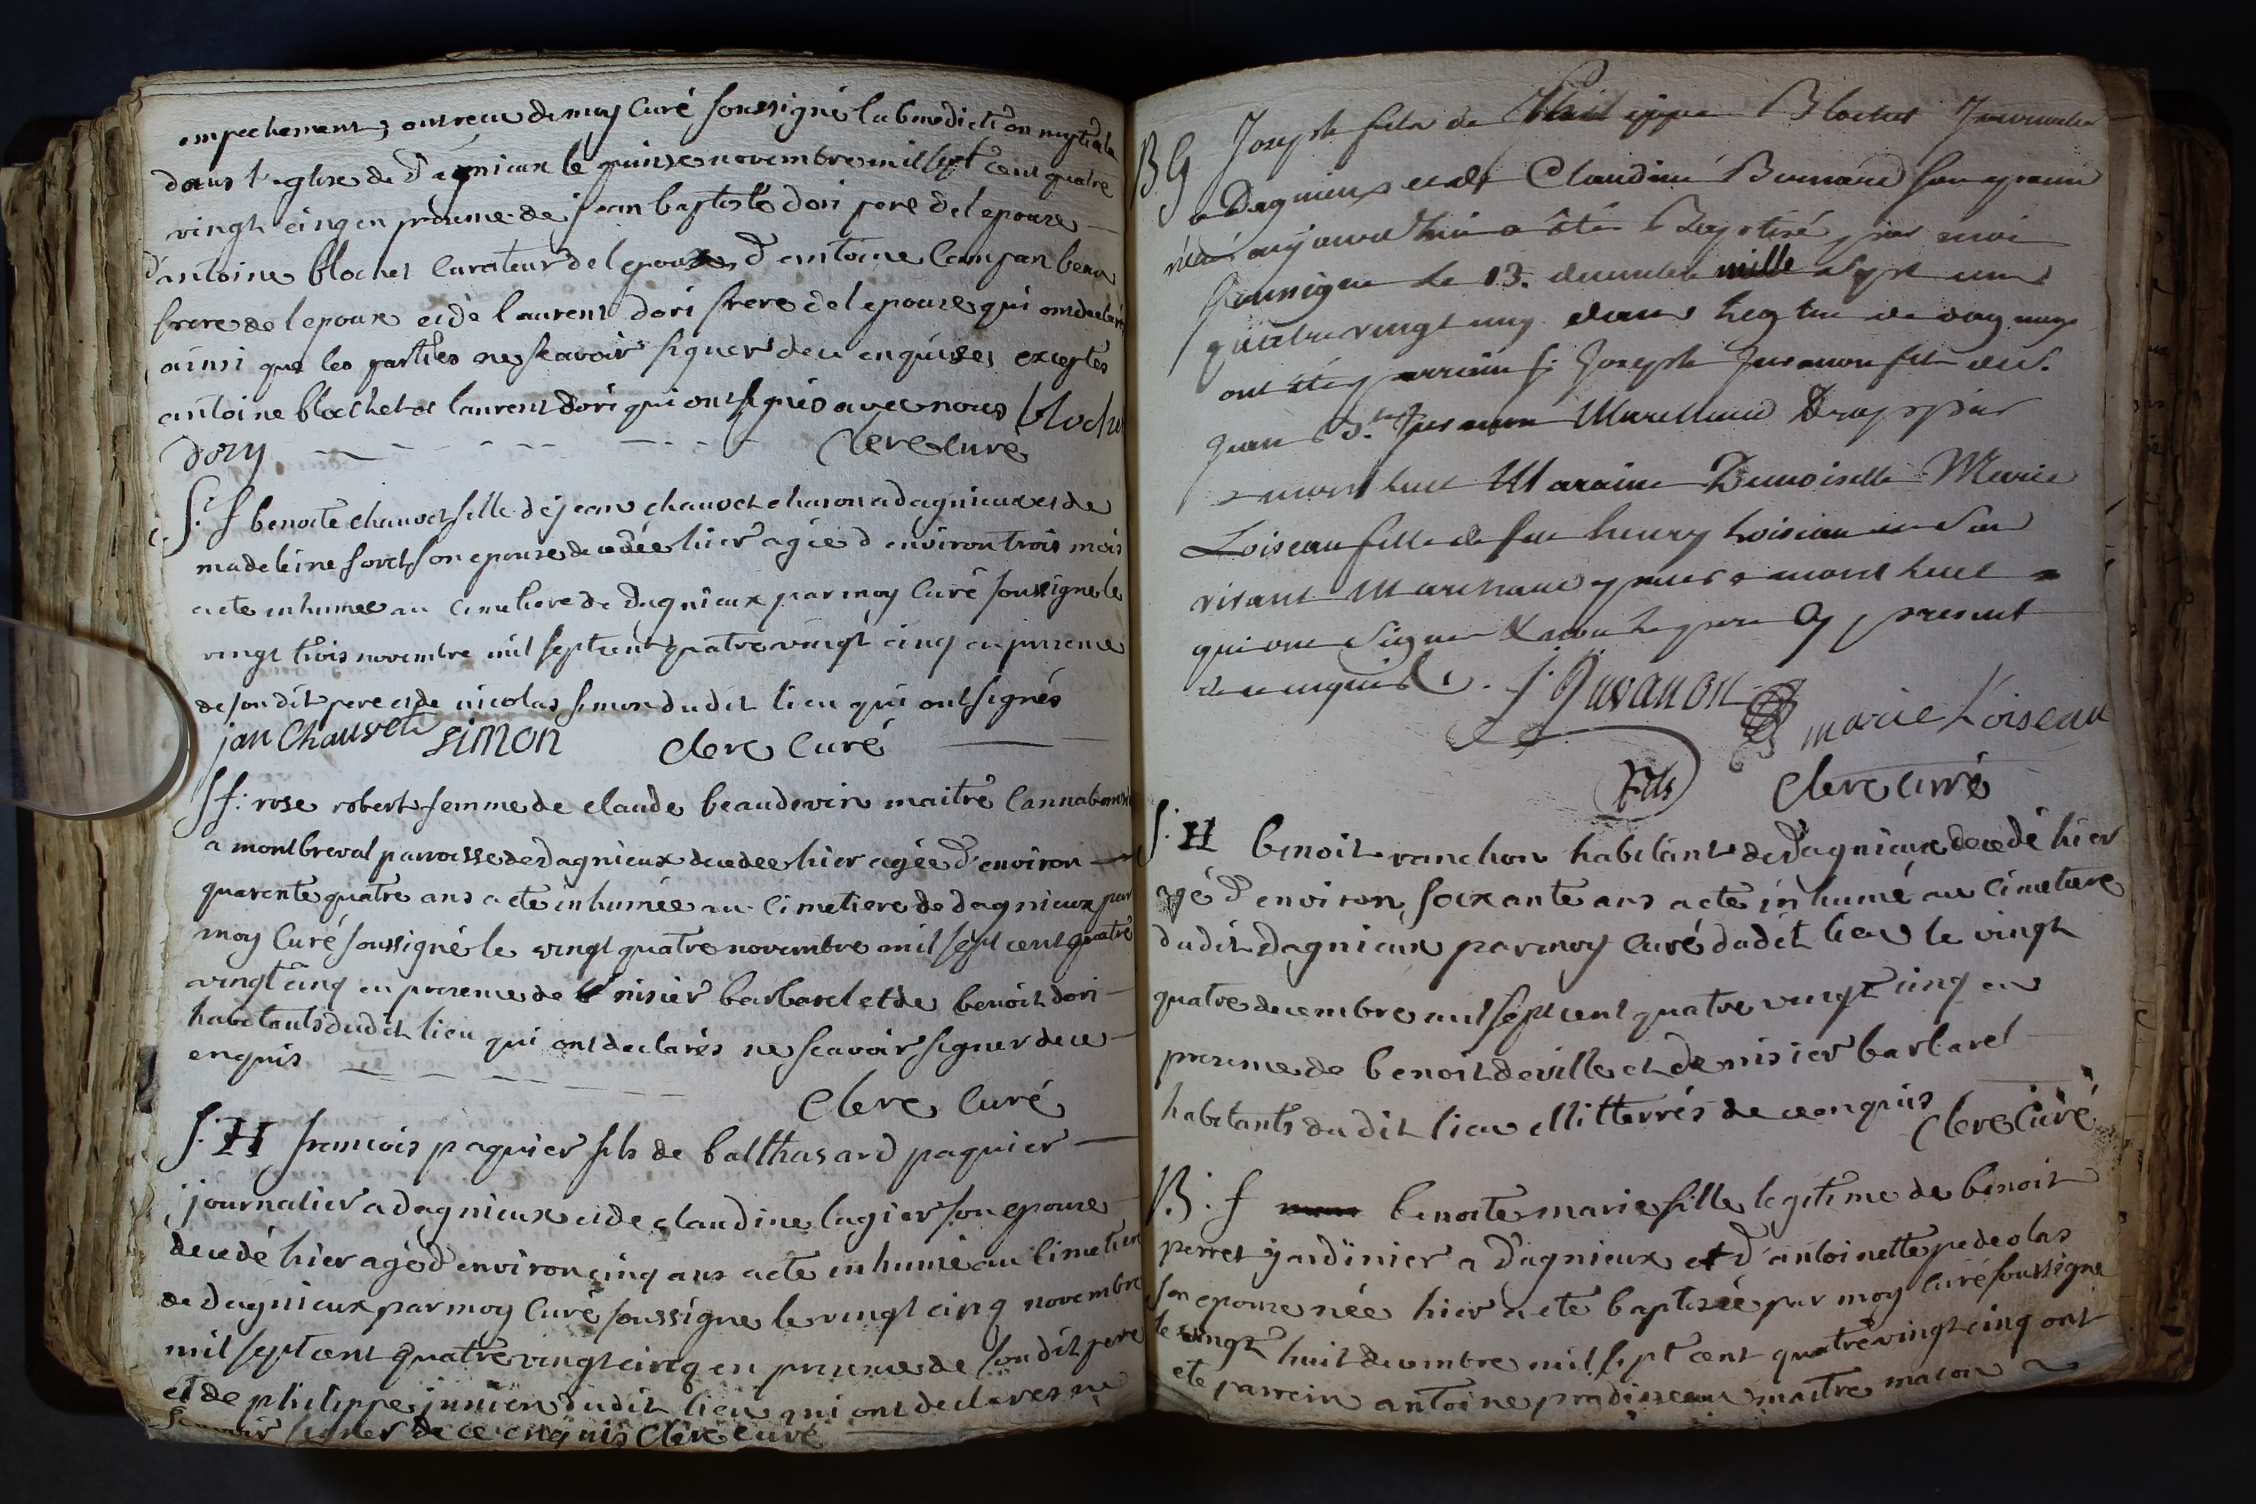 empechement, ont recu de moy Curé soussigné la benediction nuptiale
dans l'eglise de Dagnieux le quinze novembre mil sept cent quatre
vingt cinq en presence de jean baptiste dori pere de l epouse
d'antoine blochet Curateur de l epouse d'antoine
frere de l epoux et de laurent dori frere de l epouse qui ont declaré
ainsi que les parties ne scavoir signer de ce enquises exceptés
antoine blochet et laurent dori qui ont signés avec nous Blochet
Dory Clerc Curé
S. f benoite chauvet fille de jean chauvet charon a dagnieux et de
madeleine foret son epouse decedée hier agée d environ trois mois
a eté inhumée au Cimetiere de Dagnieux par moy Curé soussigné le
vingt trois novembre mil sept cent quatre vingt cinq en presence
de son dit pere et de nicolas simon du dit lieu qui ont signés
jan Chauvet simon Clerc Curé
S f: rose robert femme de claude beaudevin maitre
a montbreval parroisse de dagnieux decedée hier agée d'environ
quarente quatre ans a eté inhumée au Cimetiere de dagnieux par
moy Curé soussigné le vingt quatre novembre mil sept cent quatre
vingt cinq en presence de nisier barbaret et de benoit dori
habitants du dit lieu qui ont declarés ne scavoir signer de ce
enquis
Clerc Curé
S. H francois paquier fils de balthasard paquier
journalier a dagnieux et de claudine lagier son epouse
decedé hier agé d'environ cinq ans a eté inhumé au Cimetiere
de dagnieux par moy Curé soussigné le vingt cinq novembre
mil sept cent quatre vingt cinq en presence de son dit pere
et de philippe junien du dit lieu qui ont declarés ne
scavoir signer de ce enquis Clerc Curé
B. G Joseph fils de Philippe Blochet Journalier
a Dagnieux et de Claudine Bernard son epouse
né aujourd'hui a été Baptisé par moi
soussigné le 13. decembre mille sept cent
quatre vingt cinq dans l'eglise de dagnieux
ont été parrain S. Joseph Juvanon fils de S.
Jean B.te Juvanon Marchand Drappier
a montluel Maraine Demoiselle Marie
Loiseau fille de feu henry Loiseau en son
vivant Marchand a montluel
qui ont signé le pere present
de ce enquis. J. Juvanon
marie Loiseau
fils Clerc curé
S. H benoit ranchon habitant de Dagnieux decedé hier
agé d'environ soixante ans a eté inhumé au Cimetiere
du dit Dagnieux par moy Curé du dit lieu le vingt
quatre decembre mil sept cent quatre vingt cinq en
presence de benoit deville et de nisier barbaret
habitants du dit lieu illitterrés de ce enquis
Clerc Curé
B. f benoite marie fille legitime de benoit
perret jardinier a Dagnieux et d'antoinette pedeolas
son epouse née hier a eté baptisée par moy Curé soussigné
le vingt huit decembre mil sept cent quatre vingt cinq ont
eté parrein antoine maitre macon a